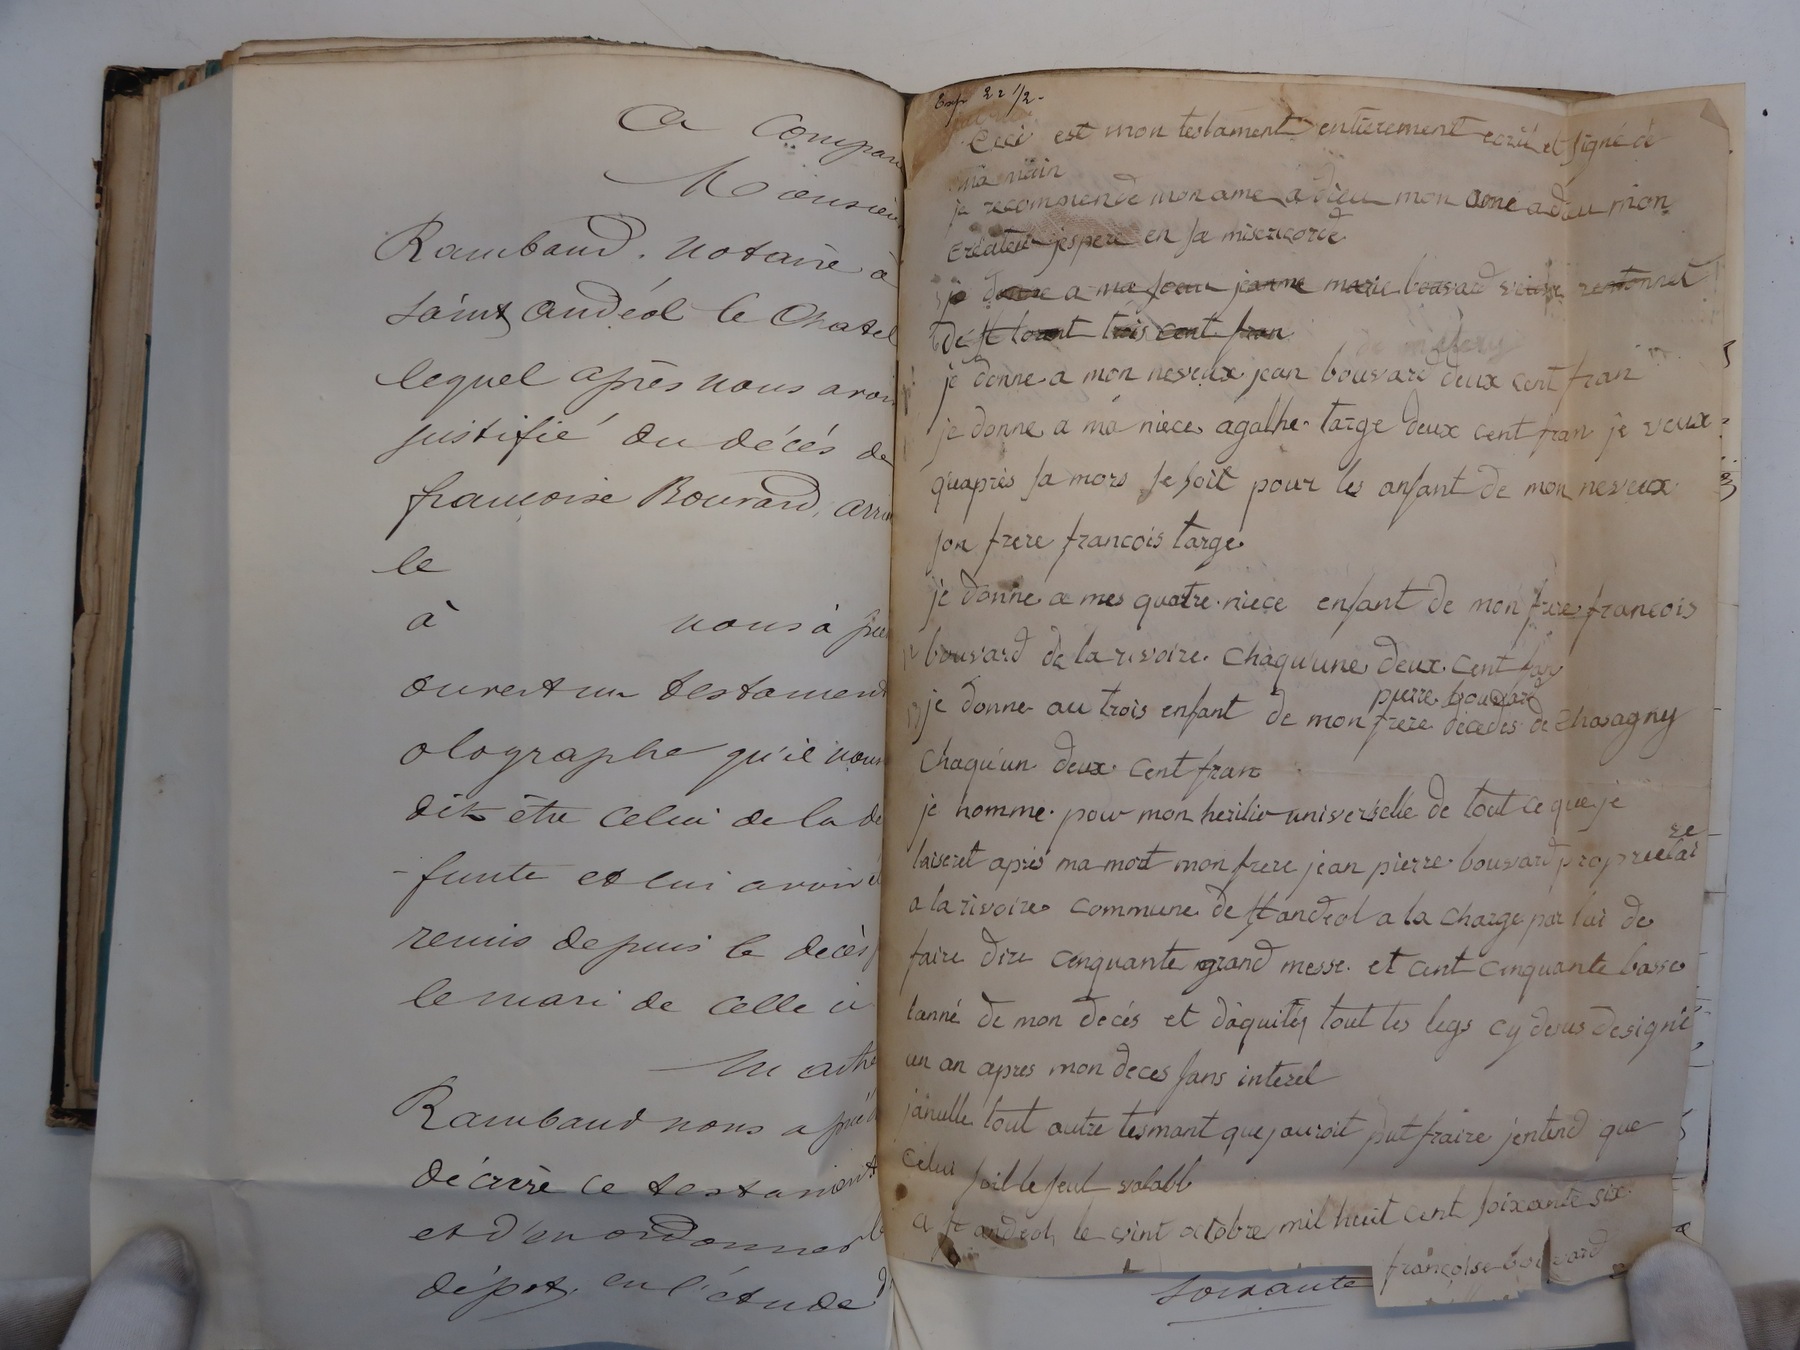 a compar
Monsieu
Rambaud, notaire à
saint andéol le Chatel
lequel après nous avoi
justifié du décés de
francoise Bouvard, arri
le
à nous à prés
ouvert un testament
olographe qu'il nous
dit être celui de la dé
-funte et lui avoir é
remis depuis le décès p
le mari de celle ci
M athe
Rambaud nous a prié d
décrire ce testament
et d'en ordonner le
dépot, en l'étude d
Exp 22 1/2-
Ceci est mon testament entierement ecrit et signé de
ma main
je recompende mon ame a dieu mon ame a dieu mon
createur jespere en sa misericorde
je donne a ma soeur jeanne marie bouvard veuve
de st lorent trois cent fran
je donne a mon neveux jean bouvard deux cent fran
je donne a ma niece agathe targe deux cent fran je veux
quapres sa mors se soit pour les anfant de mon neveux
son frere francois targe
je donne a mes quatre niece enfant de mon frere francois
bouvard de la rivoire chaqu'une deux cent fran
pierre bouvard
je donne au trois enfant de mon frere décedés de Chasagny
chaqu'un deux cent franc
je nomme pour mon heritier universelle de tout ce que je
laiseret apres ma mort mon frere jean pierre bouvard proprietai
re
a la rivoire commune de st andeol a la charge par lui de
faire dire cinquante grand messe et cent cinquante basse
lanné de mon decés et daquites tout les legs cy desus designé
un an apres mon deces sans interet
janulle tout autre tesmant que jauroit put fraire jentend que
celui soit le seul valabl
a st andeol le vint octobre mil huit cent soixante six
françoise bouvard
soixante